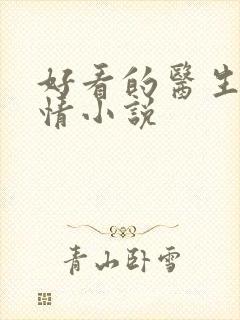 好看的醫生
情小説
青山卧雪